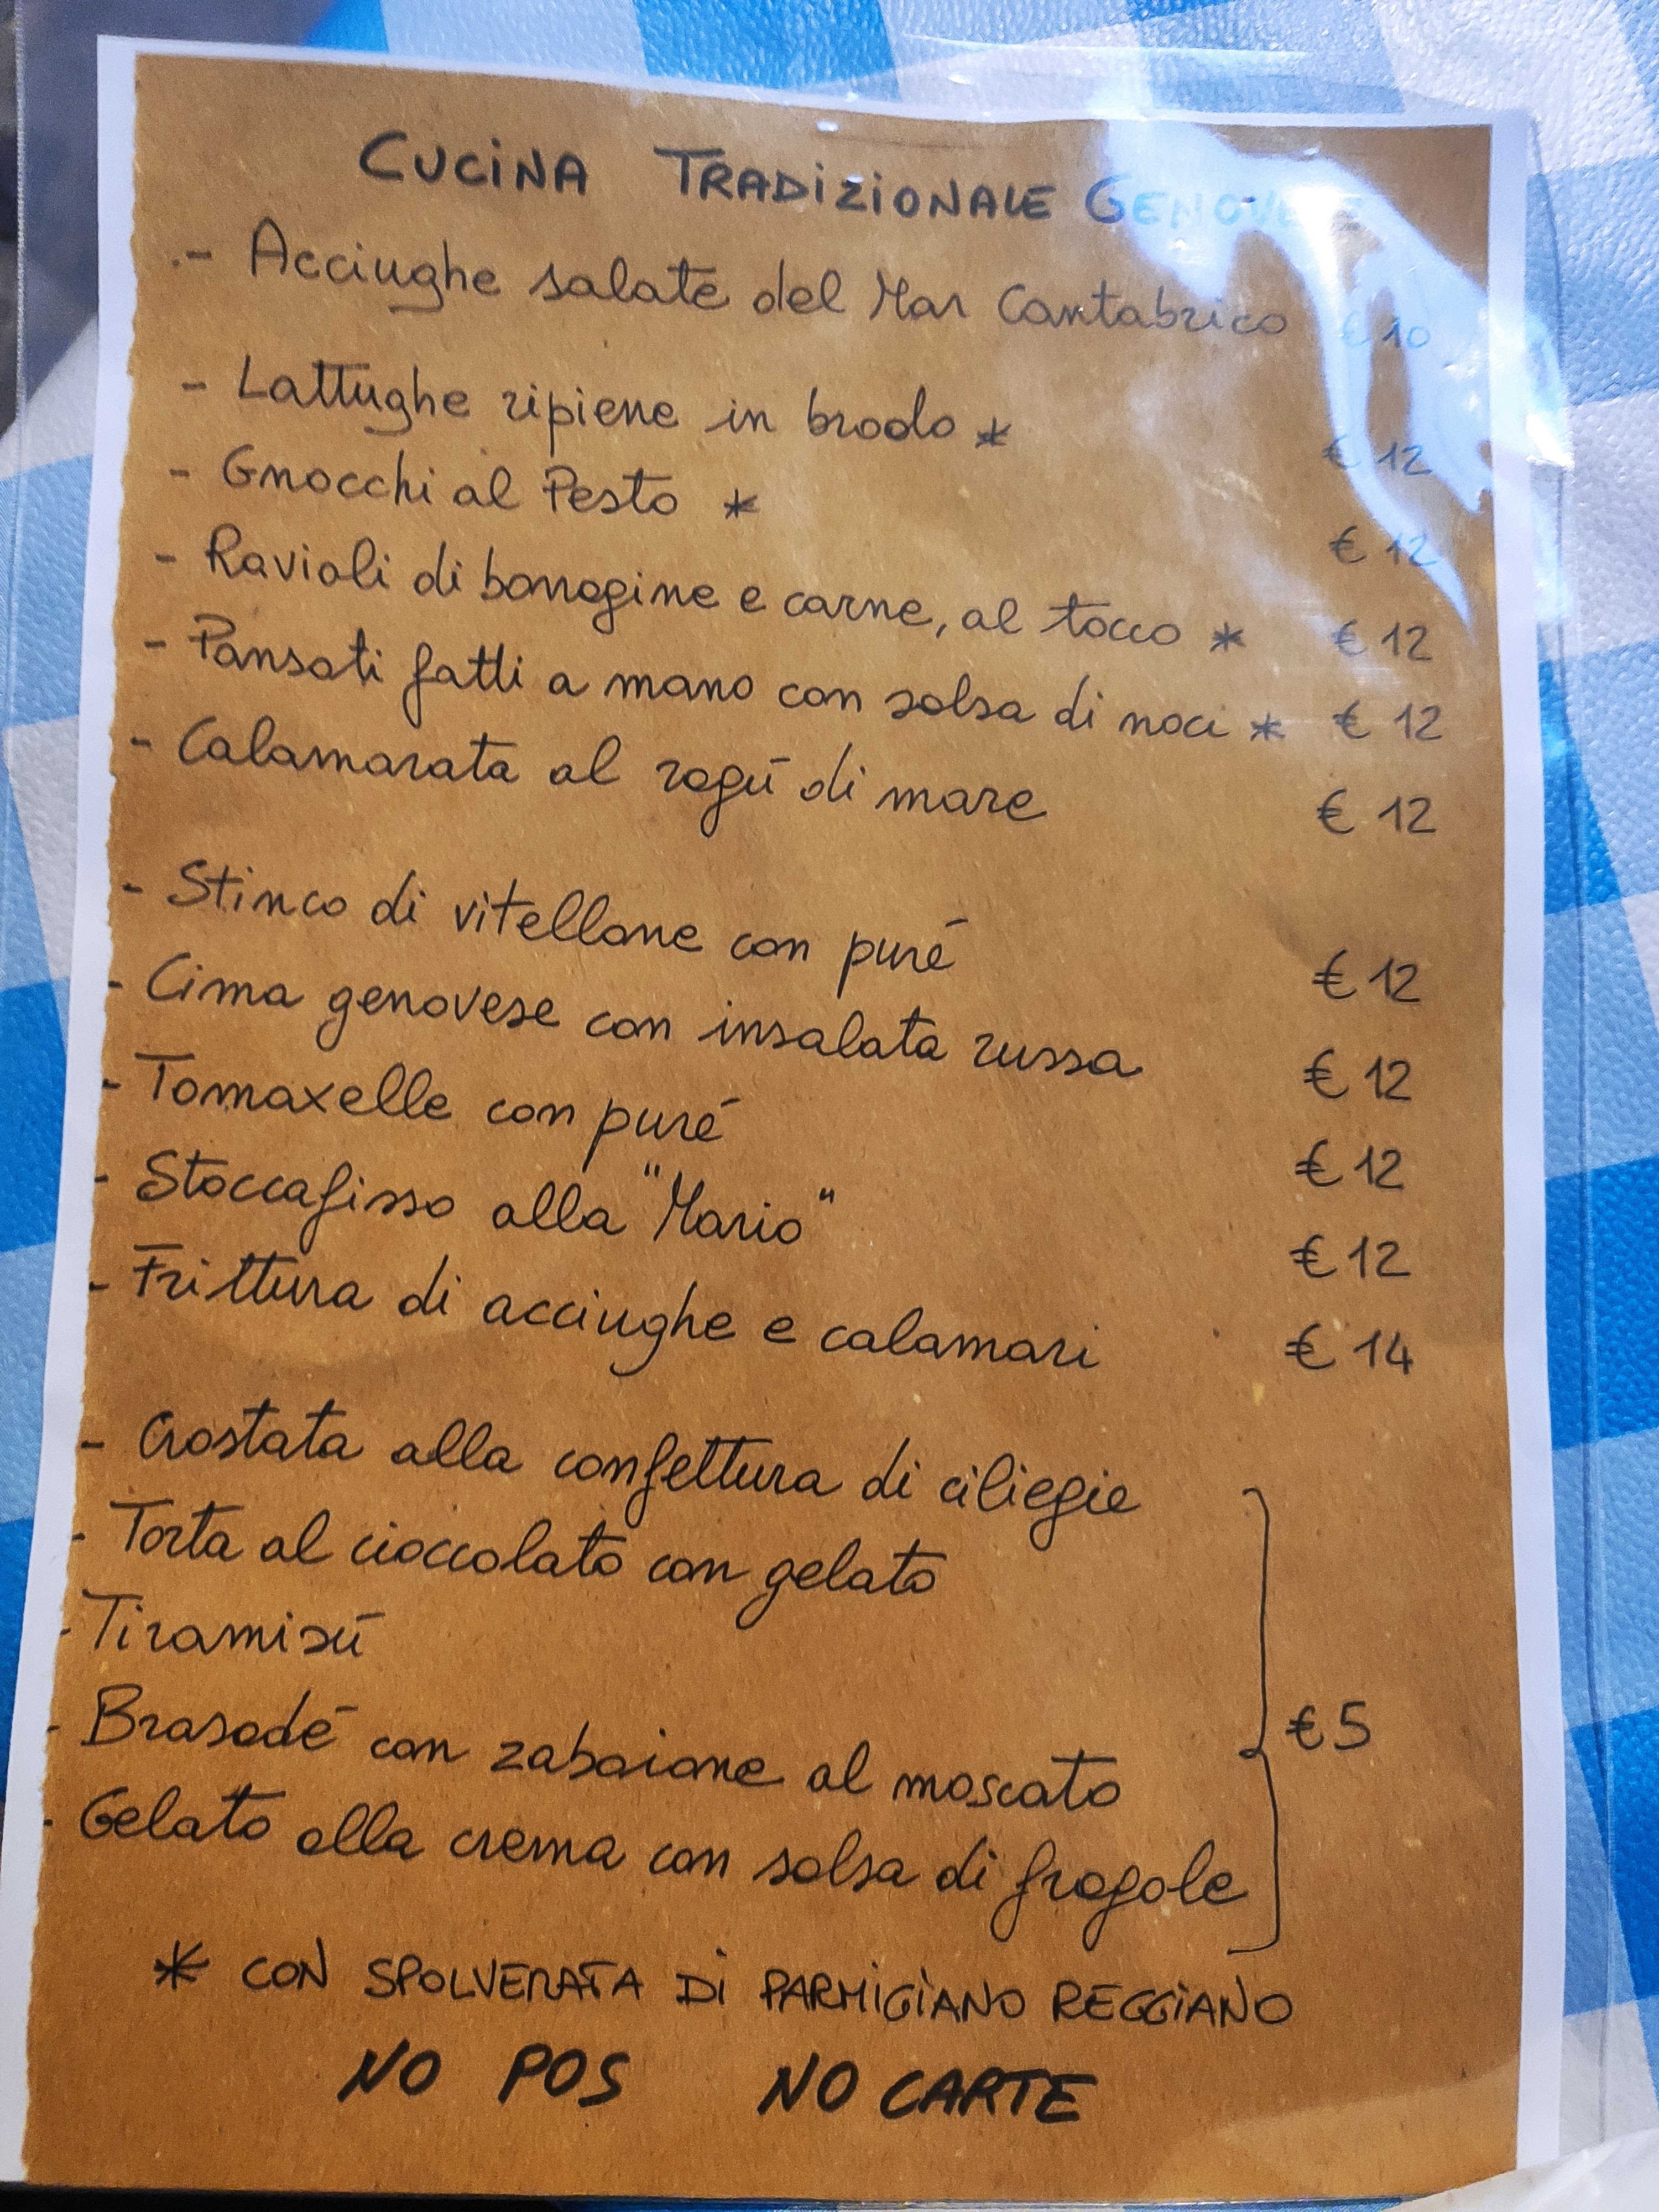 CUCINA TRADIZIONALE GENOVESE
- Acciughe salate del Mar Cantabrico € 10
- Lattughe ripiene in brodo * € 12
- Gnocchi al Pesto * € 12
- Ravioli di borragine e carne, al tocco * € 12
- Pansoti fatti a mano con salsa di noci * € 12
- Calamarata al ragú di mare € 12
- Stinco di vitellone con puré € 12
- Cima genovese con insalata russa € 12
- Tomaxelle con puré € 12
- Stoccafisso alla "Mario" € 12
- Frittura di acciughe e calamari € 14
- Crostata alla confettura di ciliegie
- Torta al cioccolato con gelato
- Tiramisú
- Brasadé con zabaione al moscato € 5
- Gelato alla crema con salsa di fragole
* CON SPOLVERATA DI PARMIGIANO REGGIANO
NO POS NO CARTE